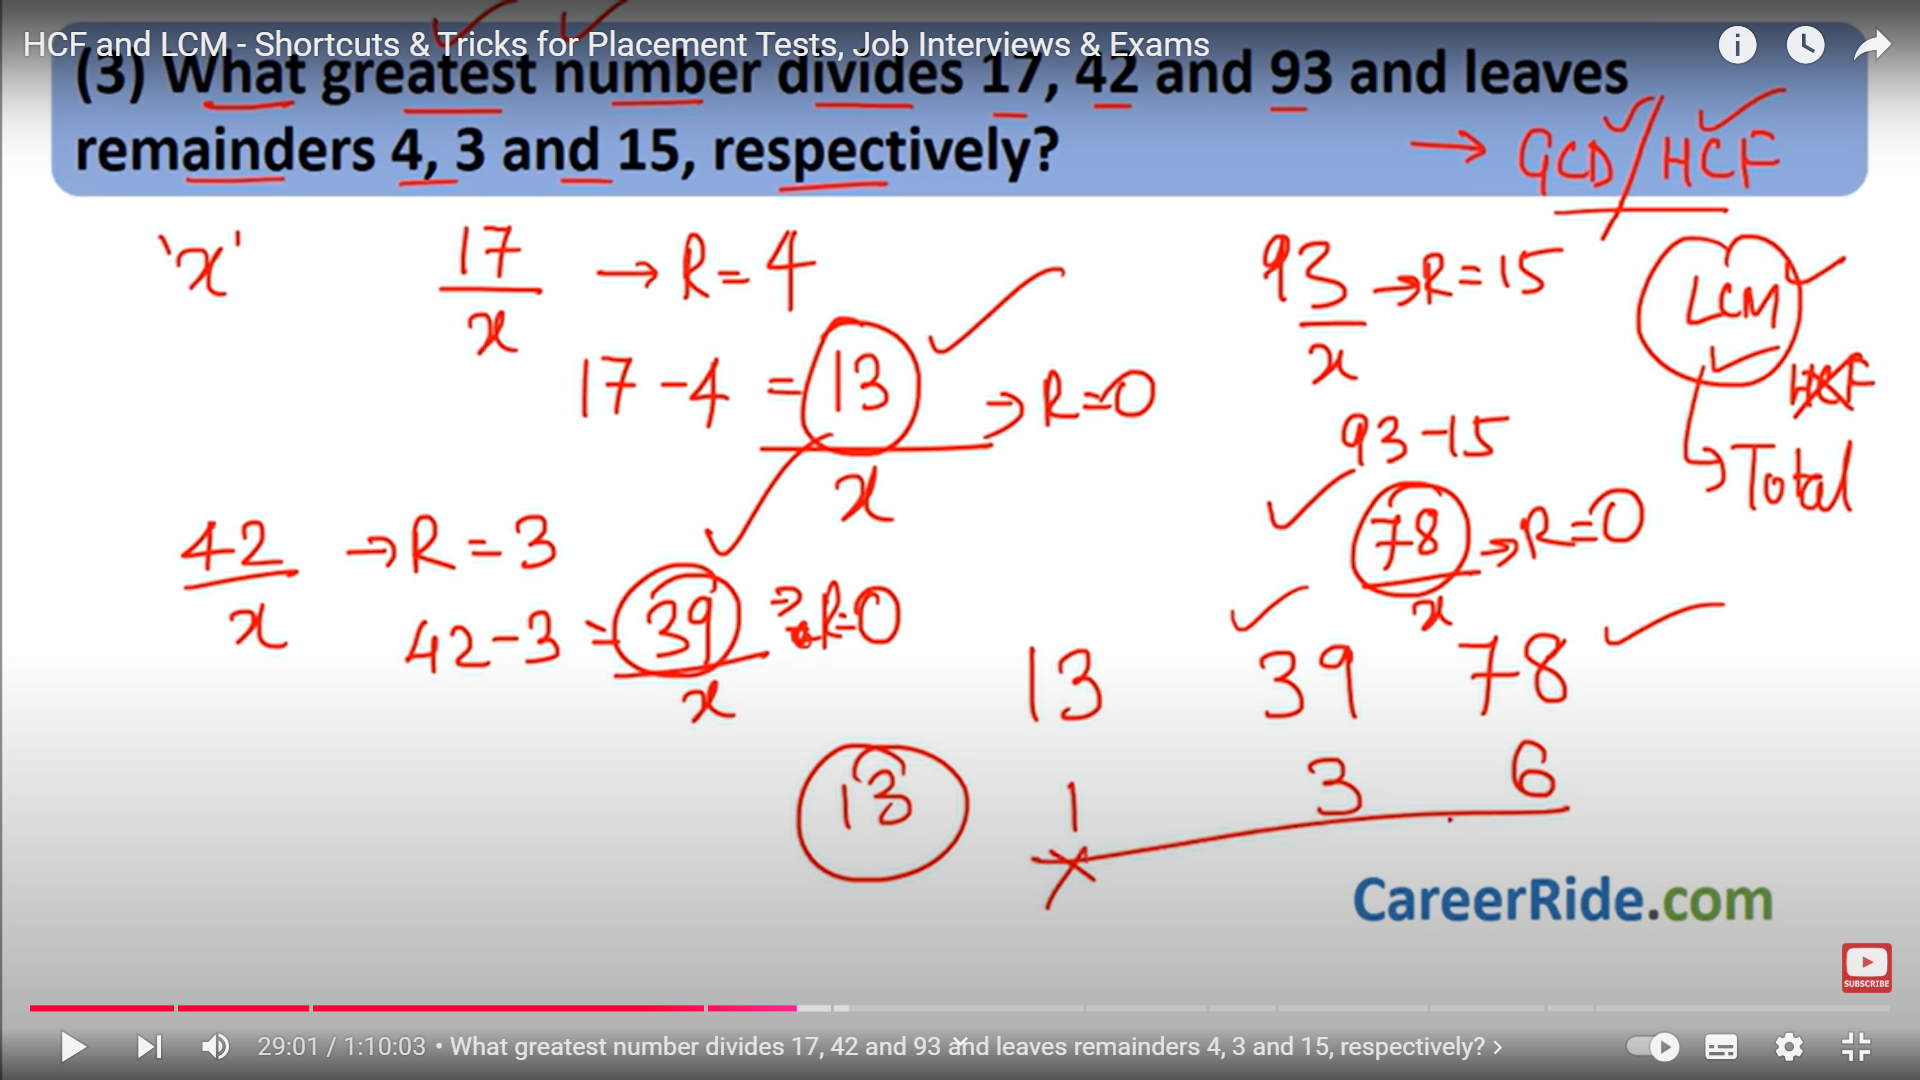 HCF and LCM - Shortcuts & Tricks for Placement Tests, Job Interviews & Exams
(3) What greatest number divides 17, 42 and 93 and leaves
remainders 4, 3 and 15, respectively?
→ GCD/HCF
'x'
17/x → R=4
93/x → R=15
LCM
17-4 = 13/x → R=0
HCF
93-15
Total
42/x → R=3
78/x → R=0
42-3 = 39/x → R=0
13 39 78
13 1 3 6
CareerRide.com
SUBSCRIBE
29:01 / 1:10:03 • What greatest number divides 17, 42 and 93 and leaves remainders 4, 3 and 15, respectively? >